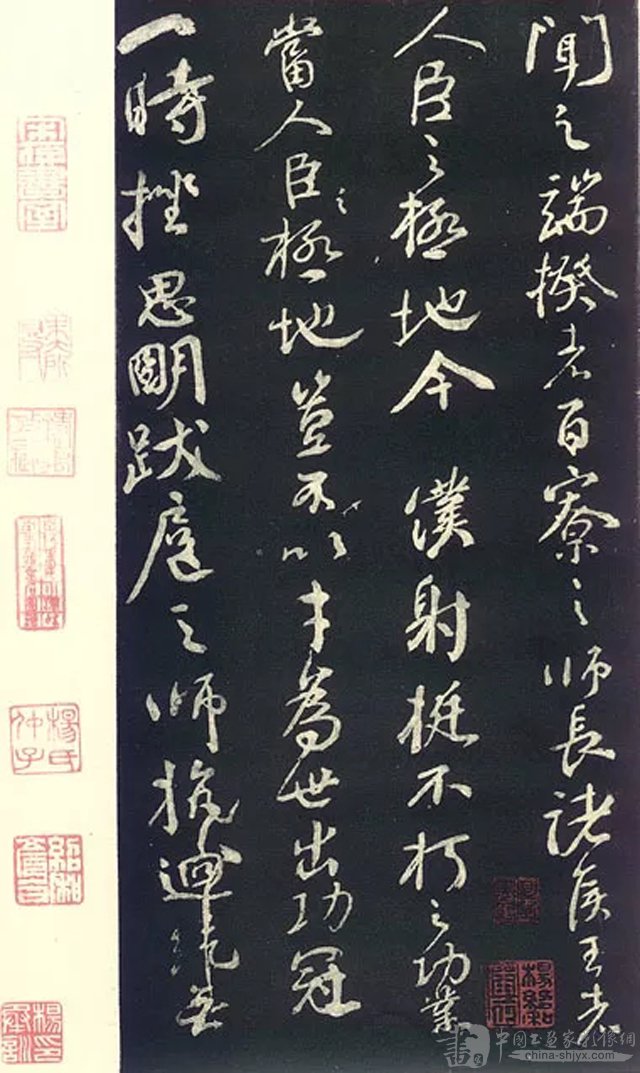 聞之端揆者百寮之師長諸侯王者
人臣之極地今僕射挺不朽之功業
當人臣之極地豈不以才為世出功冠
一時挫思明跋扈之師抗迴紇無
楊氏仲子
中国书画家影像網
china-shjyx.com